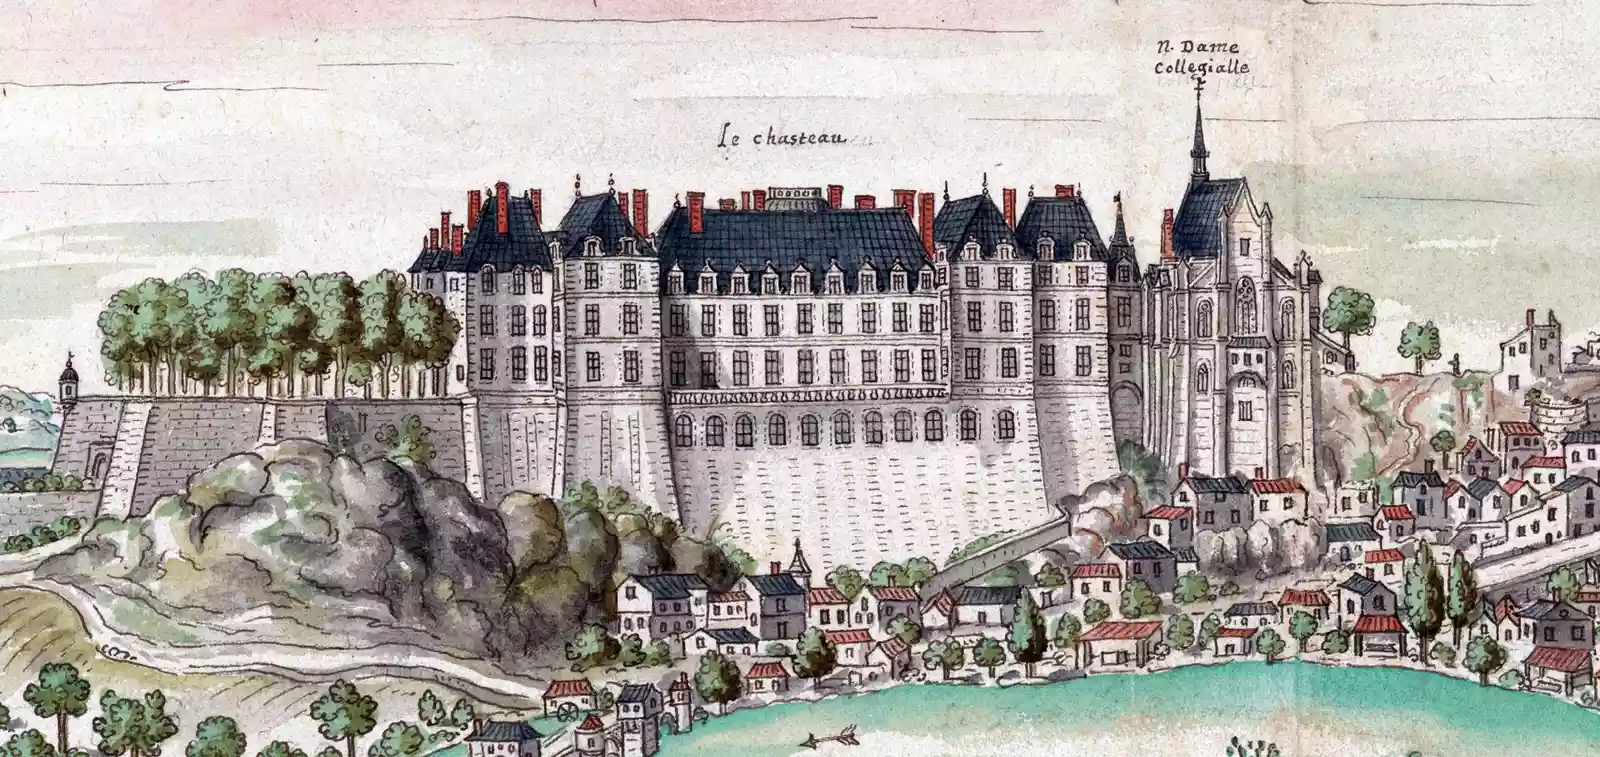 N. Dame
Collegialle
Le chasteau